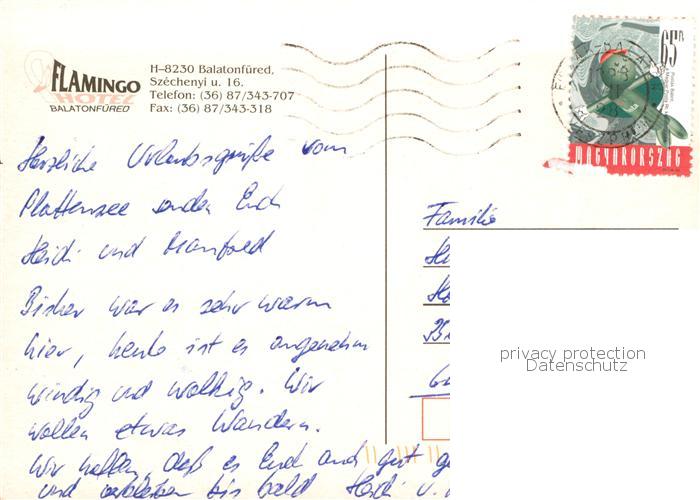 FLAMINGO
HOTEL
BALATONFÜRED
H–8230 Balatonfüred,
Széchenyi u. 16.
Telefon: (36) 87/343-707
Fax: (36) 87/343-318
65Ft
MAGYARORSZÁG
Herzliche Urlaubsgrüße vom
Plattensee senden Euch
Heidi und Manfred
Bisher war es sehr warm
hier, heute ist es angenehm
windig und wolkig. Wir
wollen etwas Wandern.
Wir hoffen, daß es Euch auch gut
und verbleiben bis bald Heidi u.
Familie
privacy protection
Datenschutz